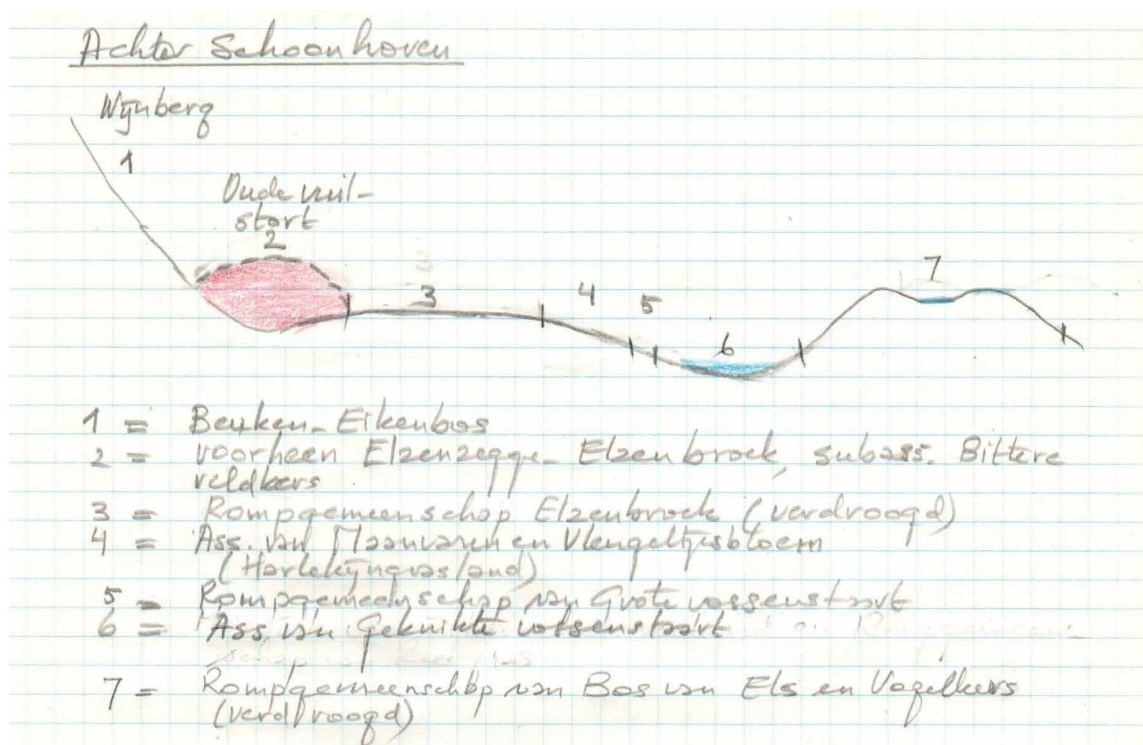 Achter Schoonhoven
Wijnberg
1
Oude vuil-
stort
2
3
4
5
6
7
1 = Beuken-Eikenbos
2 = voorheen Elzenzegge-Elzenbroek, subass. Bittere
veldkers
3 = Rompgemeenschap Elzenbroek (verdroogd)
4 = Ass. van Maanvaren en Vleugeltjesbloem
(Harlekijngrasland)
5 = Rompgemeenschap van Grote vossenstaart
6 = Ass. van Geknikte vossenstaart
7 = Rompgemeenschap van Bos van Els en Vogelkers
(verdroogd)